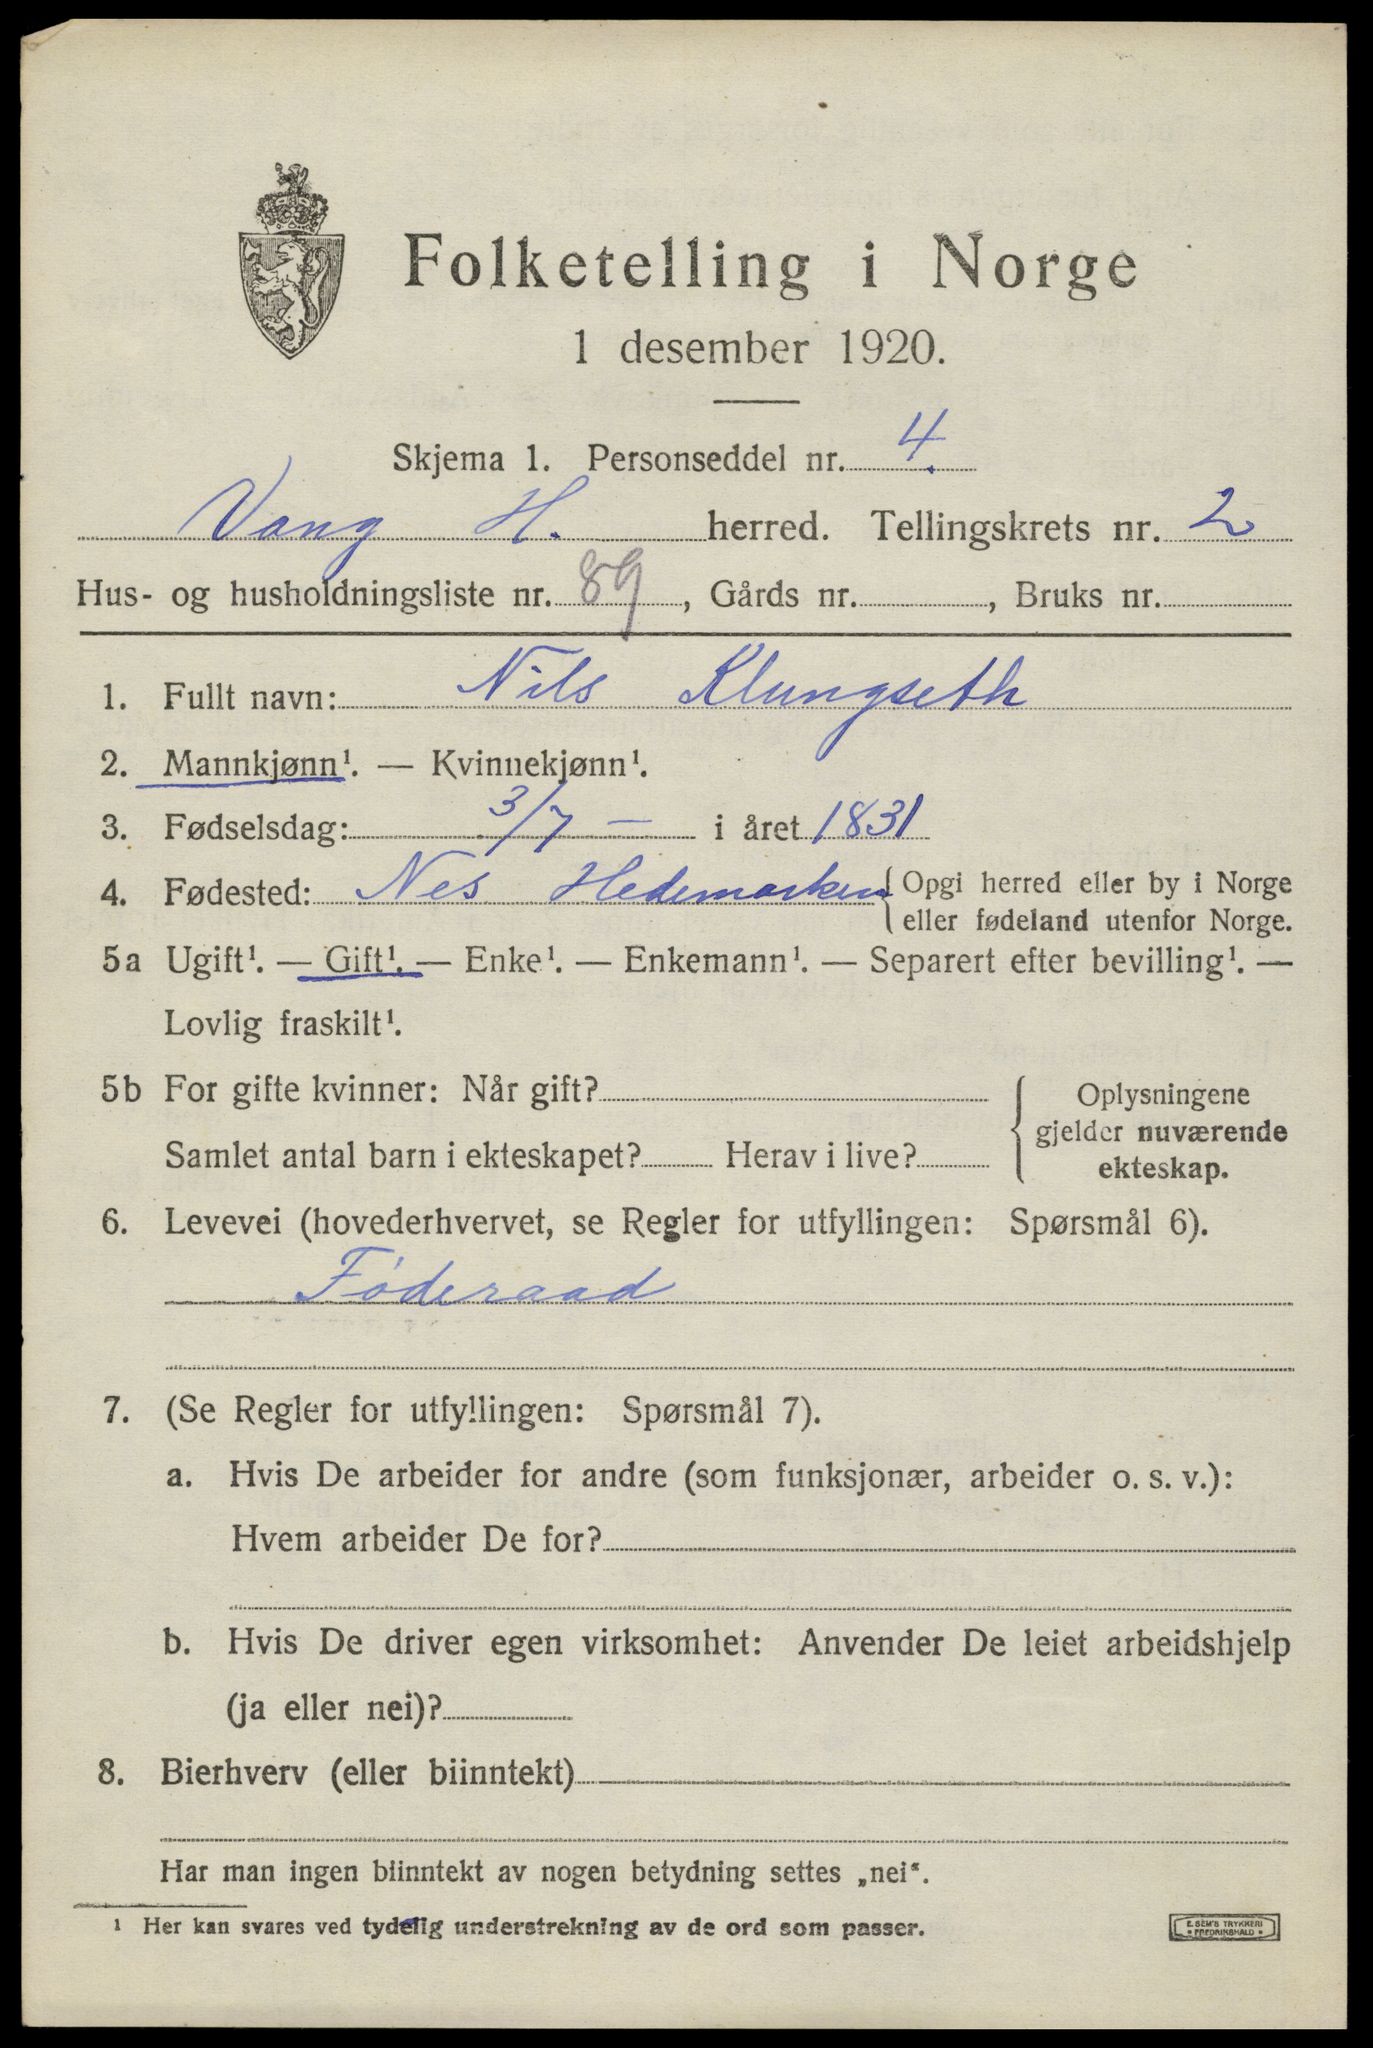 Folketelling i Norge
1 desember 1920.
Skjema 1. Personseddel nr. 4.
Vang H. herred. Tellingskrets nr. 2
Hus- og husholdningsliste nr. 89, Gårds nr. , Bruks nr.
1. Fullt navn: Nils Klungseth
2. Mannkjønn¹. — Kvinnekjønn¹.
3. Fødselsdag: 3/7 - i året 1831
4. Fødested: Nes Hedemarken { Opgi herred eller by i Norge
eller fødeland utenfor Norge.
5a Ugift¹. — Gift¹. — Enke¹. — Enkemann¹. — Separert efter bevilling¹. —
Lovlig fraskilt¹.
5b For gifte kvinner: Når gift?
Samlet antal barn i ekteskapet? Herav i live?
Oplysningene
gjelder nuværende
ekteskap.
6. Levevei (hovederhvervet, se Regler for utfyllingen: Spørsmål 6).
Føderaad
7. (Se Regler for utfyllingen: Spørsmål 7).
a. Hvis De arbeider for andre (som funksjonær, arbeider o. s. v.):
Hvem arbeider De for?
b. Hvis De driver egen virksomhet: Anvender De leiet arbeidshjelp
(ja eller nei)?
8. Bierhverv (eller biinntekt)
Har man ingen biinntekt av nogen betydning settes „nei“.
¹ Her kan svares ved tydelig understrekning av de ord som passer.
E. SEM'S TRYKKERI
• FREDRIKSHALD •